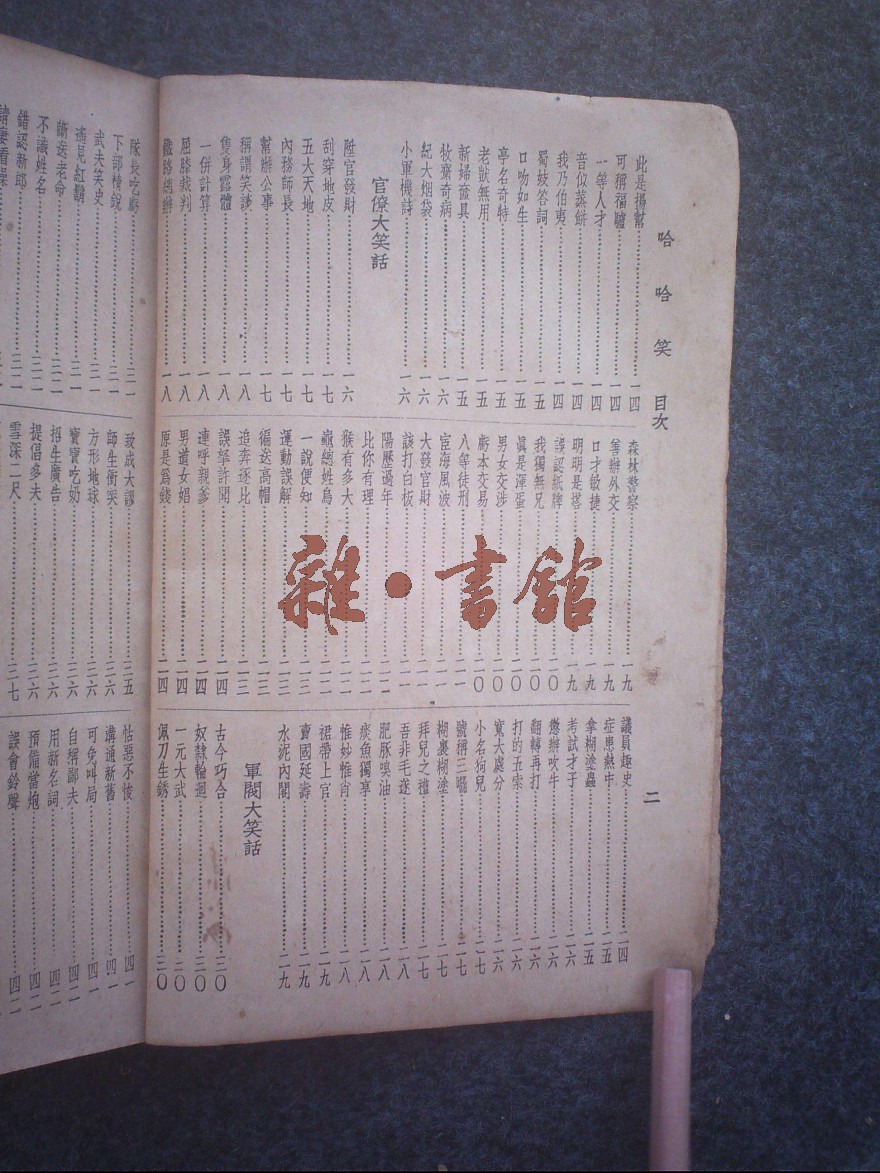 哈哈笑 目次
二
此是揚幫 一四
可稱福驢 一四
一等人才 一四
音似蒸餅 一四
我乃伯夷 一四
蜀妓答詞 一五
口吻如生 一五
亭名奇特 一五
老獃無用 一五
新婦奩具 一五
牧齋奇病 一六
紀大烟袋 一六
小軍機詩 一六
官僚大笑話
陞官發財 一六
刮穿地皮 一七
五大天地 一七
內務師長 一七
幫辦公事 一七
稱謂笑談 一八
隻身露體 一八
一併計算 一八
屈膝裁判 一八
鐵路總辦 一八
森林警察 一九
善辦外交 一九
口才敏捷 一九
明明是搭 一九
誤認紙牌 二〇
我獨無兄 二〇
眞是渾蛋 二〇
男女交涉 二〇
虧本交易 二〇
八等徒刑 二一
宦海風波 二一
大發官財 二一
該打白板 二一
陽歷過年 二二
比你有理 二二
猴有多大 二二
龜總姓烏 二二
一說便知 二三
運動誤解 二三
徧送高帽 二三
追奔逐比 二三
誤拏許閙 二四
連呼親爹 二四
男盜女娼 二四
原是爲錢 二四
議員趣史 二四
症患熱中 二五
拿糊塗蟲 二五
考試才子 二六
懲辦吹牛 二六
翻轉再打 二六
打的五索 二六
寬大處分 二六
小名狗兒 二七
號稱三嘴 二七
糊裹糊塗 二七
拜兒之禮 二七
吾非毛遂 二八
肥豚嗅油 二八
痰魚獨享 二八
惟妙惟肖 二八
裙帶上官 二九
賣國延壽 二九
水泥內閣 二九
軍閥大笑話
古今巧合 三〇
奴隸輪迴 三〇
一元大武 三〇
佩刀生銹 三〇
隊長吃虧 三一
下部情說 三一
武夫笑史 三一
遙見紅鬍 三一
斷送老命 三二
不識姓名 三二
錯認新郎 三二
致成大謬 三五
師生衝突 三六
方形地球 三六
寶寶吃奶 三六
招生廣告 三六
提倡多夫 三六
雪深二尺 三七
怙惡不悛 四一
溝通新舊 四一
可免叫局 四一
自稱鄙夫 四一
用新名詞 四二
預備當炮 四二
誤會鈴聲 四二
雜·書館